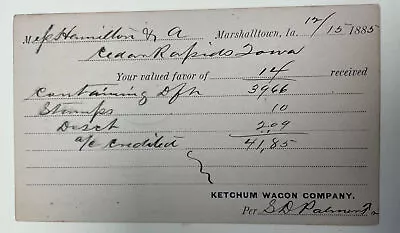 Mess Hamilton & A Marshalltown, Ia. 12/15 1885
Cedar Rapids Iowa
Your valued favor of 14 received
Containing Dft 39 66
Stamps 10
Disct 2.09
a/c credited 41,85
KETCHUM WAGON COMPANY.
Per S D Palmer